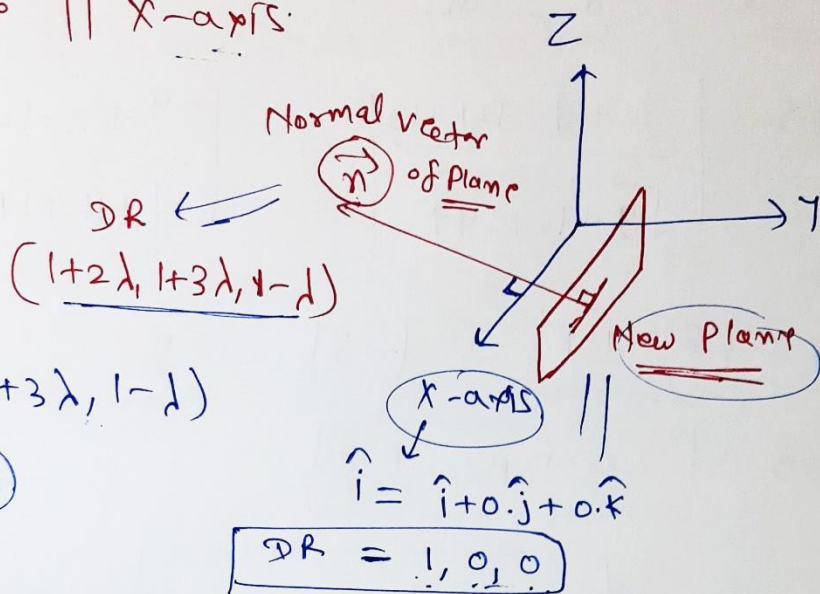 || X-axis.
Z
Normal vector
n⃗ of Plane
DR
Y
(1+2λ, 1+3λ, 1-λ)
New Plane
+3λ, 1-λ)
X-axis ||
î = î+0.ĵ+0.k̂
DR = 1, 0, 0